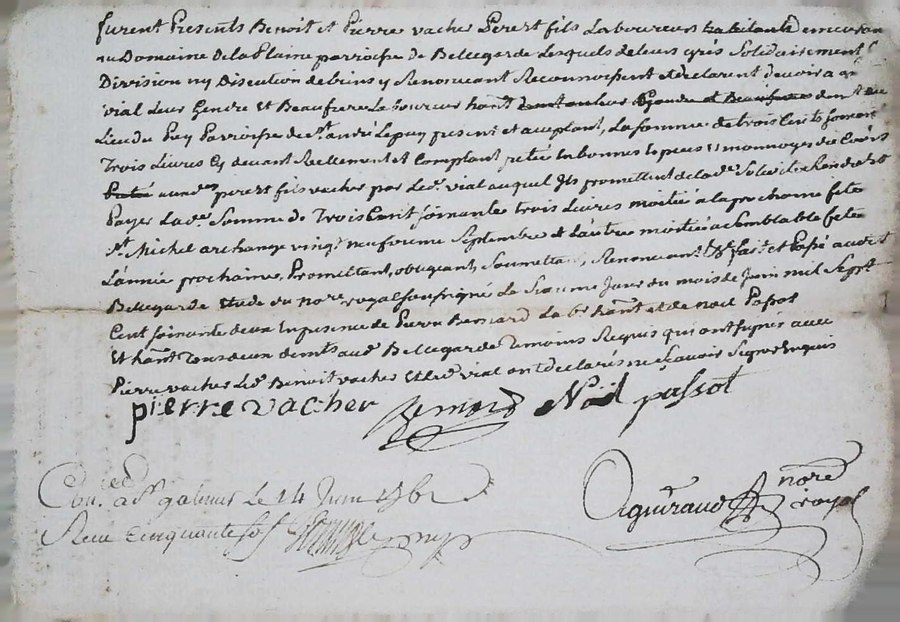 furent Presents Benoit et Pierre vacher Pere et fils Laboureurs habitants
au Domaine de la Plaine parroisse de Bellegarde Lesquels de leurs grés Solidairement
Division ny Discution de biens y Renonceant Reconnoissent et declarent devoir a
vial Leur Gendre et Beaufrere Laboureur hant
Lieu du Puy Parroisse de St. andré Le puy present et acceptant, La somme de trois Cents soixante
Trois Livres Cy devant Reellement et Comptant pretée en bonnes Especes et monnoyes de Cours
auxds pere et fils vacher par Led. vial auquel Ils promettent de La de. Solidité Rendre et
Payer Lade. Somme de Trois Cent soixante trois Livres moitié a la prochaine fete
St. Michel archange vingt neufvieme Septembre et L'autre moitié a Semblable fete
L'année prochaine, Promettant, obligeant, Soumettant, Renonceant &c fait et Passé audit
Bellegarde Etude du nore. royal soussigné Le Jour du mois de Juin mil Sept
Cent soixante deux En presence de Pierre Bernard Labr. hant. et de noël Passot
Et hant. Tous deux aud. Bellegarde Temoins Requis qui ont signés avec
Pierre vacher Led. Benoit vacher et Led. vial ont declarés ne sçavoir signer Enquis
pierre vacher Bernard Noël passot
Con. a St. galmier Le 14 Juin 1762
Reçu Cinquante
Aguiraud nore. royal